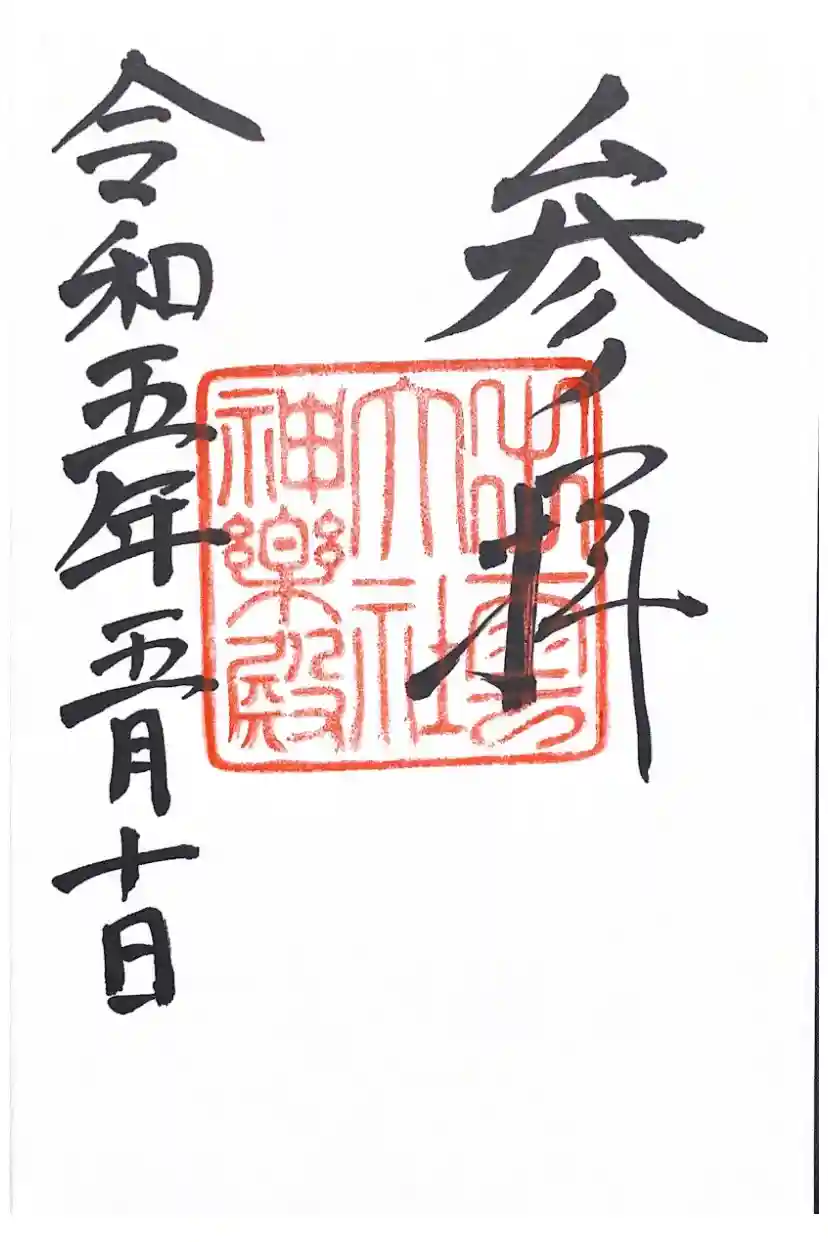 参拝
出雲
大社
神楽殿
令和五年五月十日